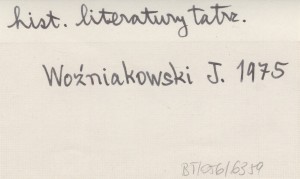 hist. literatury tatrz.
Woźniakowski J. 1975
BT/056/6359